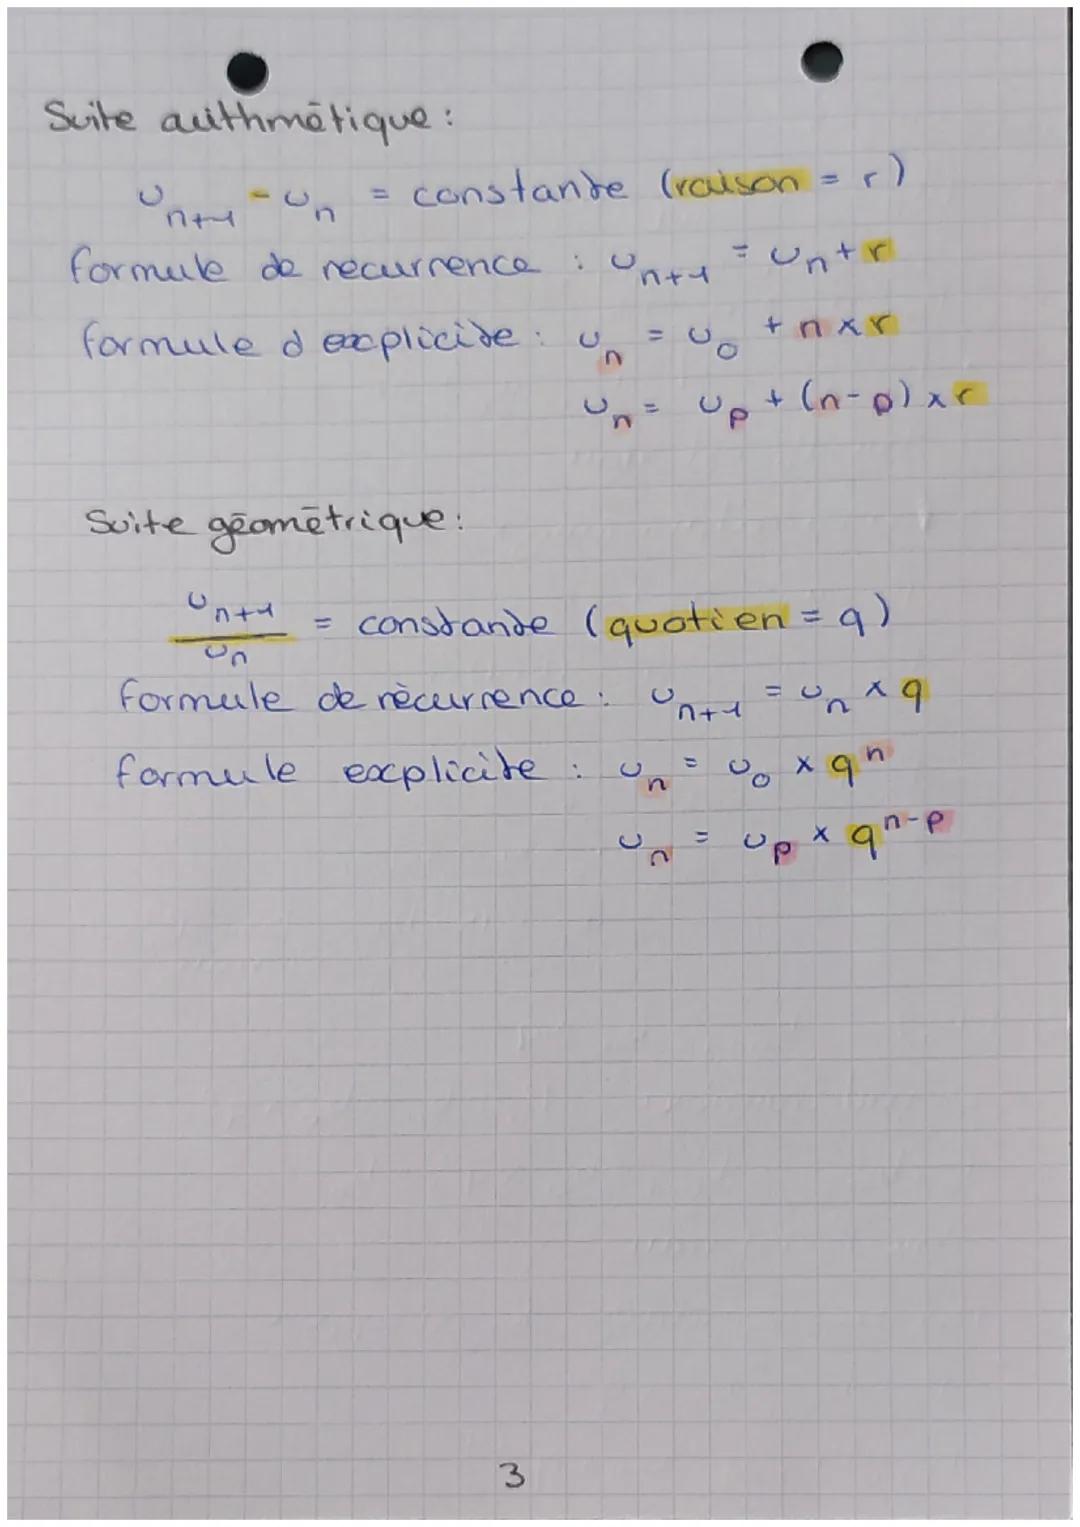 Suite arithmétique :
u_{n+1} - u_n = constante (raison = r)
formule de récurrence : u_{n+1} = u_n + r
formule d explicite : u_n = u_0 + n × r
u_n = u_p + (n-p) × r
Suite géométrique :
u_{n+1}
u_n
= constante (quotien = q)
formule de rècurrence : u_{n+1} = u_n × q
formule explicite : u_n = u_0 × q^n
u_n = u_p × q^{n-p}
3